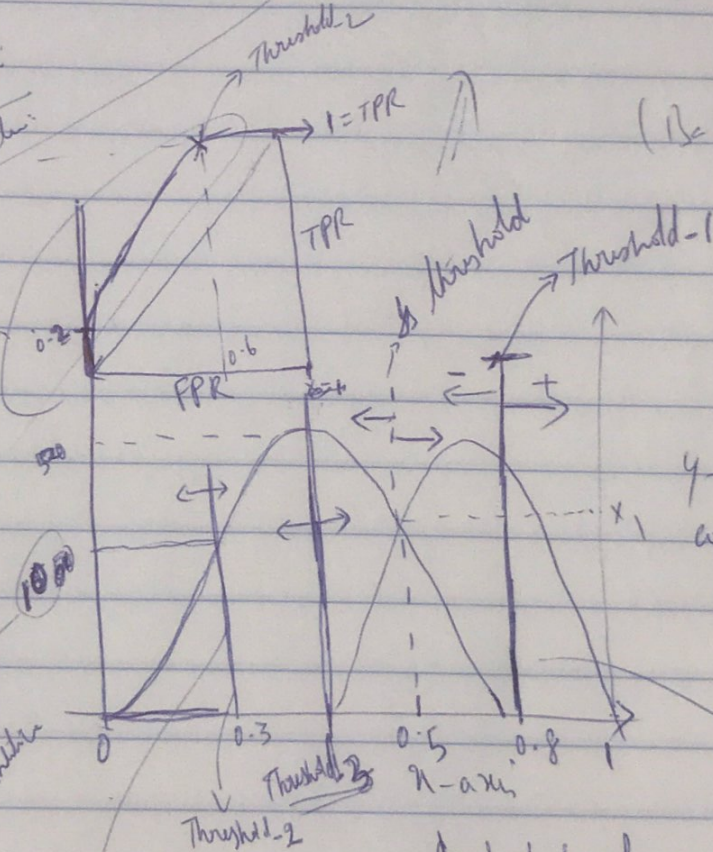 Threshold-2
1 = TPR
TPR
threshold
Threshold-1
0.2
0.6
FPR
- +
500
x1
y-
0 0.3 0.5 0.8 1
Threshold-3
x-axis
Threshold-2